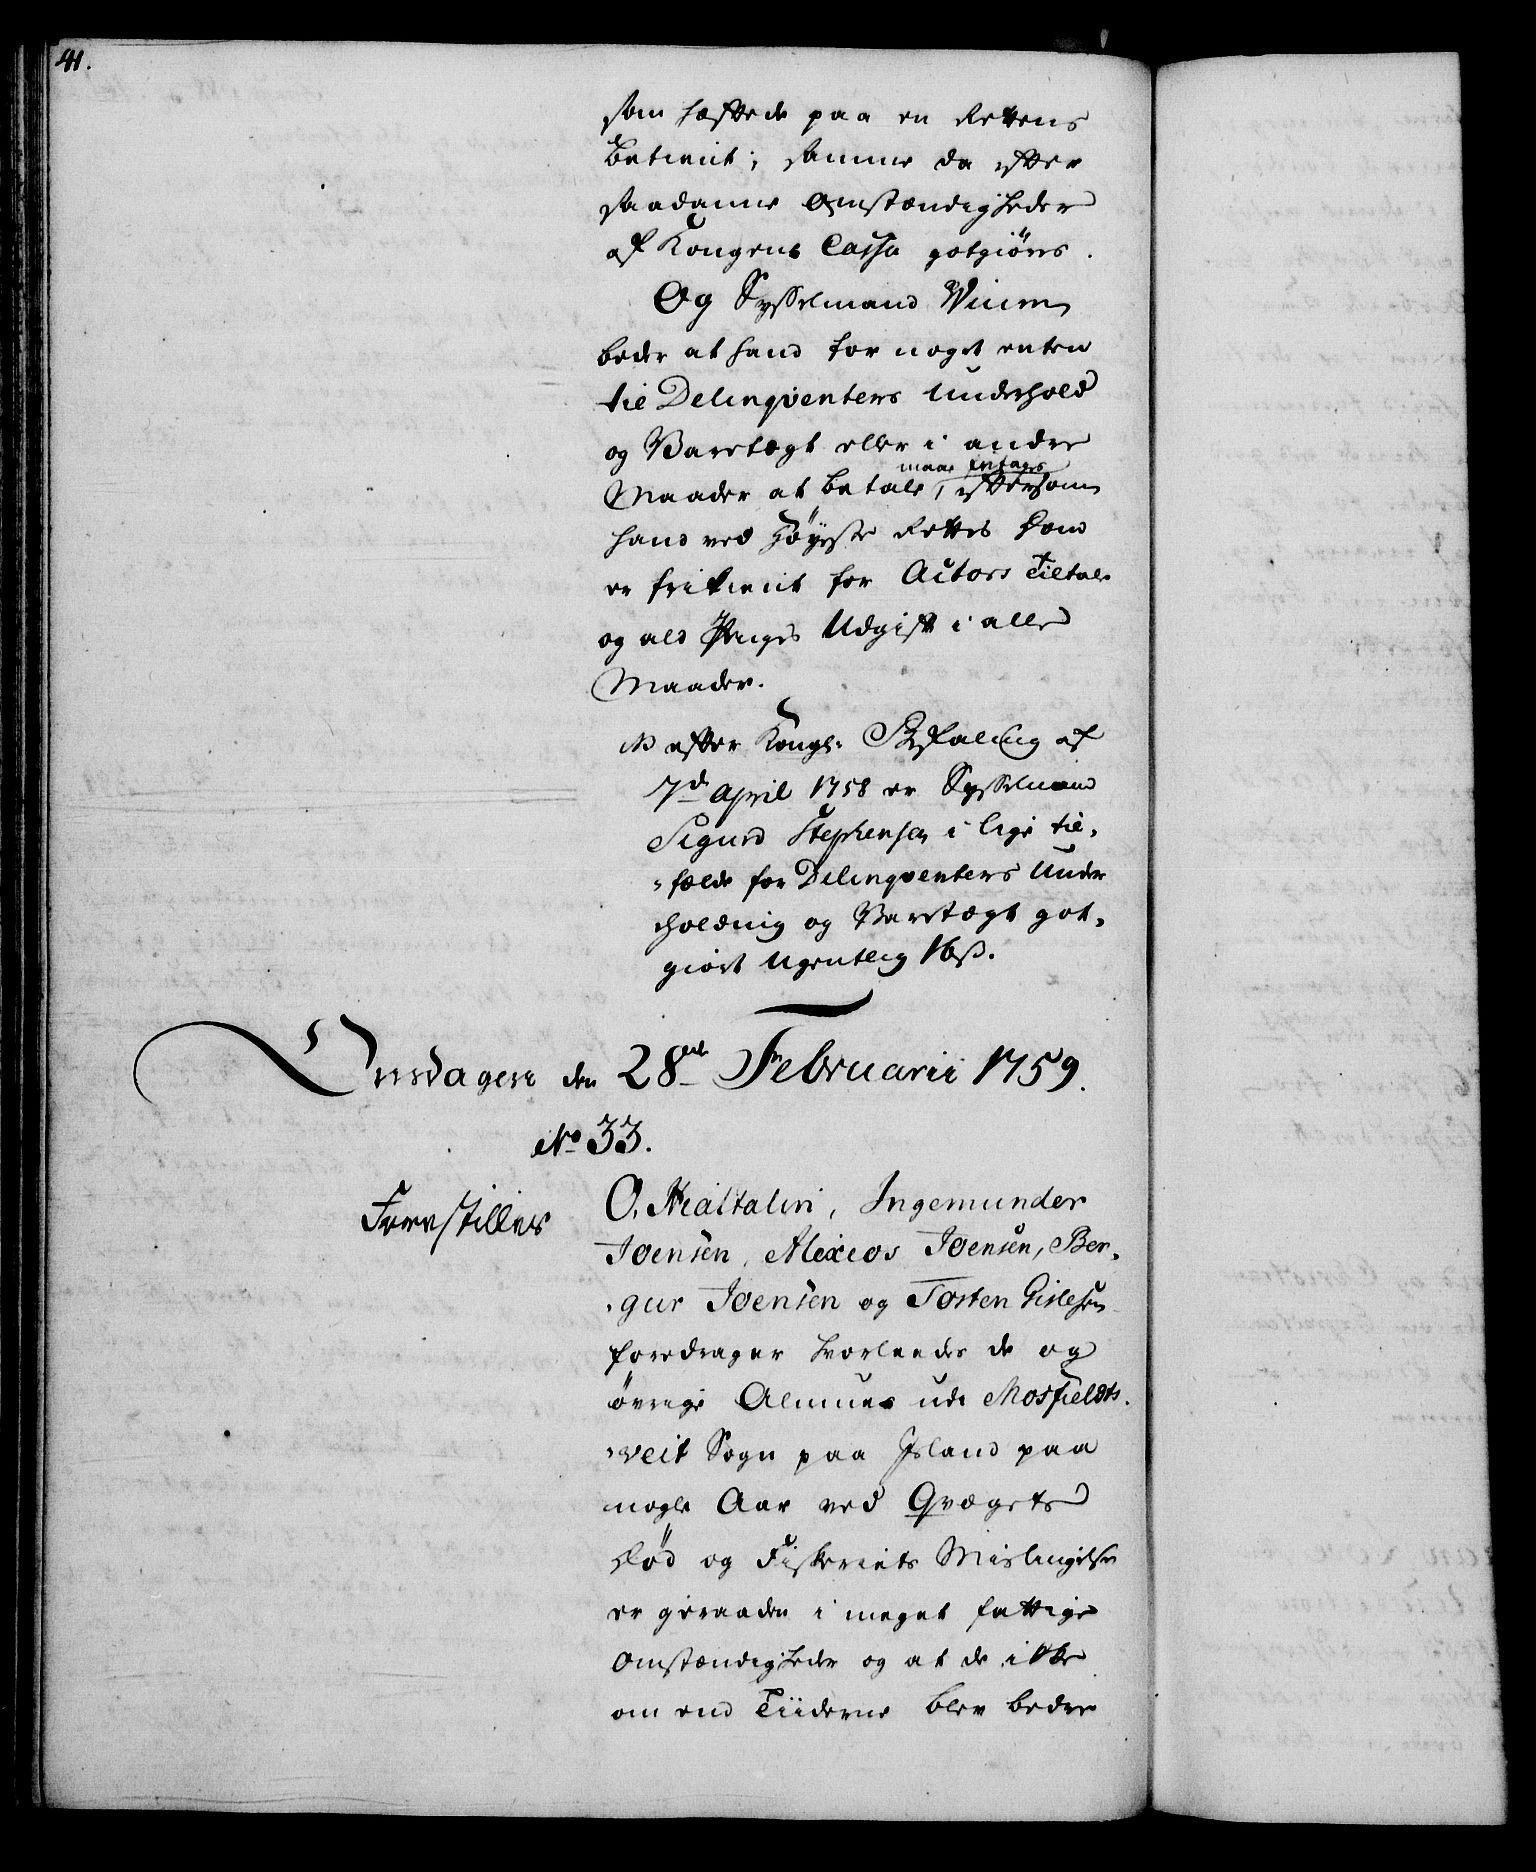 41.
som hæftede paa en Rettens
Betient; samme da efter
saadanne Omstændigheder
af Kongens Cassa gotgiøres.
Og Sysselmand Wium
beder at hand for noget enten
til Delinqventers Underhold
og Varetægt eller i andre
maae fritages
Maader at betale, eftersom
hand ved Høyeste Rettes Dom
er frikient for Actors Tiltale
og ald Penges Udgift i alle
Maader.
NB efter Kongl: Befaling af
7d April 1758 er Sysselmand
Sigurd Stephensen i lige til-
-fælde for Delinqventers Under
holdning og Varetægt got-
giort Ugentlig 16 ß.
Onsdagen den 28de Februarii 1759.
No 33.
Forestilles
O. Hialtalin, Ingemunder
Joensen, Alexius Joensen, Ber-
-gur Joensen og Tosten Gislesen
foredrager hvorledes de og
øvrige Almue udi Mosfieldts-
-veit Sogn paa Island paa
nogle Aar ved Qvægets
Død og Fiskeriets Mislingelse
er geraaden i meget fattige
Omstændigheder og at de ikke
om end Tiiderne blev bedre